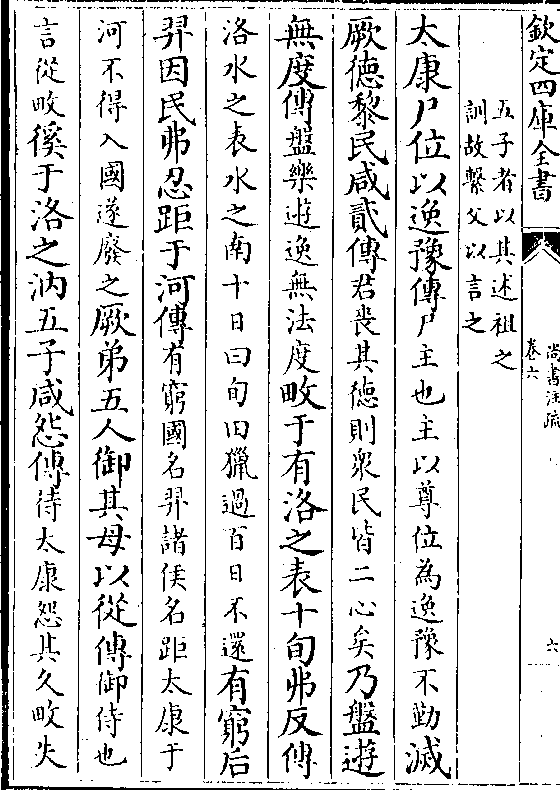 欽定四庫全書
尚書注疏
卷六
六
五子者以其述祖之
訓故繫父以言之
太康尸位以逸豫傳尸主也主以尊位為逸豫不勤滅
厥德黎民咸貳傳君喪其德則衆民皆二心矣乃盤遊
無度傳盤樂遊逸無法度畋于有洛之表十旬弗反傳
洛水之表水之南十日曰旬田獵過百日不還有窮后
羿因民弗忍距于河傳有窮國名羿諸侯名距太康于
河不得入國遂廢之厥弟五人御其母以從傳御侍也
言從畋徯于洛之汭五子咸怨傳待太康怨其久畋失